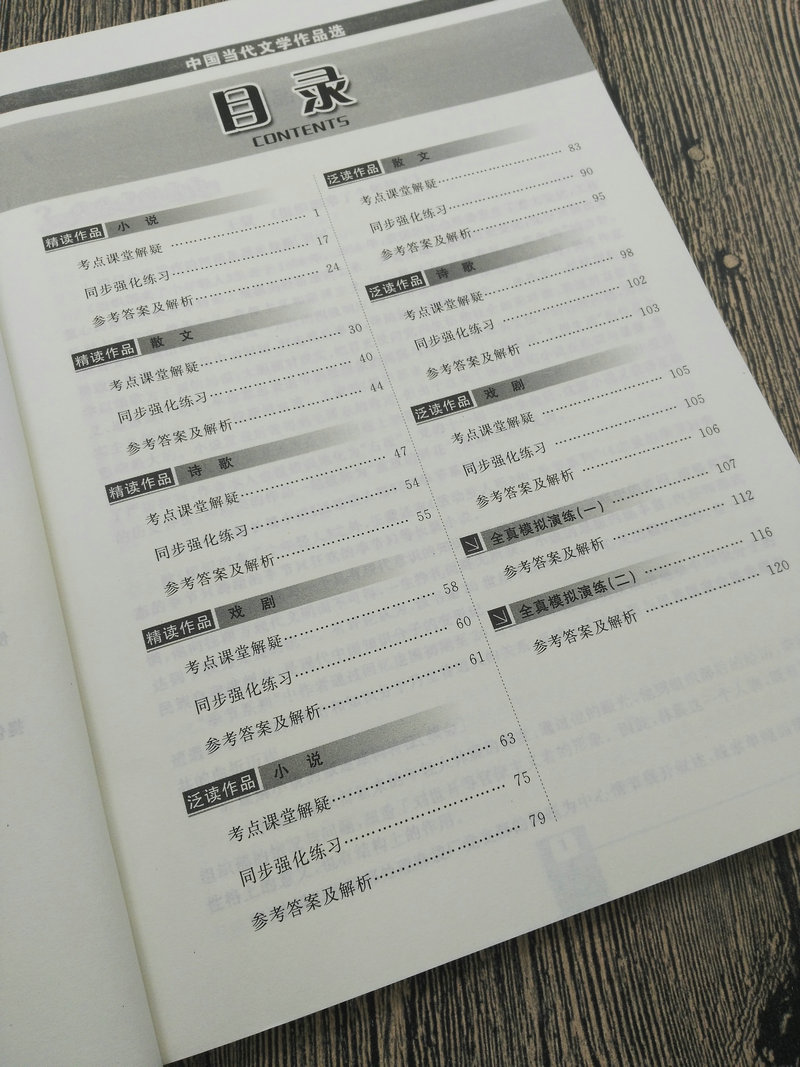 中国当代文学作品选
目录
CONTENTS
精读作品 小说
考点课堂解疑 1
同步强化练习 17
参考答案及解析 24
精读作品 散文
考点课堂解疑 30
同步强化练习 40
参考答案及解析 44
精读作品 诗歌
考点课堂解疑 47
同步强化练习 54
参考答案及解析 55
精读作品 戏剧
考点课堂解疑 58
同步强化练习 60
参考答案及解析 61
泛读作品 小说
考点课堂解疑 63
同步强化练习 75
参考答案及解析 79
泛读作品 散文
考点课堂解疑 83
同步强化练习 90
参考答案及解析 95
泛读作品 诗歌
考点课堂解疑 98
同步强化练习 102
参考答案及解析 103
泛读作品 戏剧
考点课堂解疑 105
同步强化练习 105
参考答案及解析 106
全真模拟演练(一) 107
参考答案及解析 112
全真模拟演练(二) 116
参考答案及解析 120